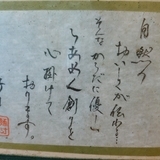 自然の
おいしさが伝わる…
そんなからだに優しい
らあめん創りを
心掛けて
おります。